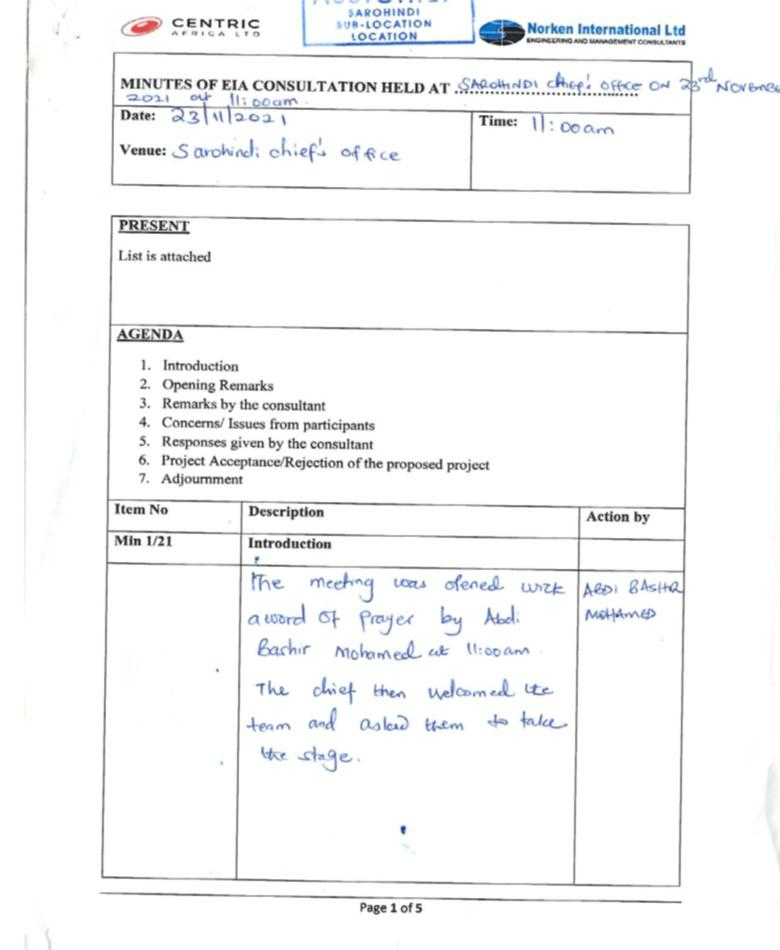 CENTRIC
AFRICA LTD
SAROHINDI
SUB-LOCATION
LOCATION
Norken International Ltd
ENGINEERING AND MANAGEMENT CONSULTANTS
MINUTES OF EIA CONSULTATION HELD AT SAROHINDI chief's office ON 23rd NOVEMBE
2021 at 11:00am.
Date: 23/11/2021
Time: 11:00am
Venue: Sarohindi chief's office
PRESENT
List is attached
AGENDA
1. Introduction
2. Opening Remarks
3. Remarks by the consultant
4. Concerns/ Issues from participants
5. Responses given by the consultant
6. Project Acceptance/Rejection of the proposed project
7. Adjournment
Item No Description Action by
Min 1/21 Introduction
The meeting was opened with ABDI BASHIR
a word of Prayer by Abdi MOHAMED
Bashir Mohamed at 11:00am.
The chief then welcomed the
team and asked them to take
the stage.
Page 1 of 5